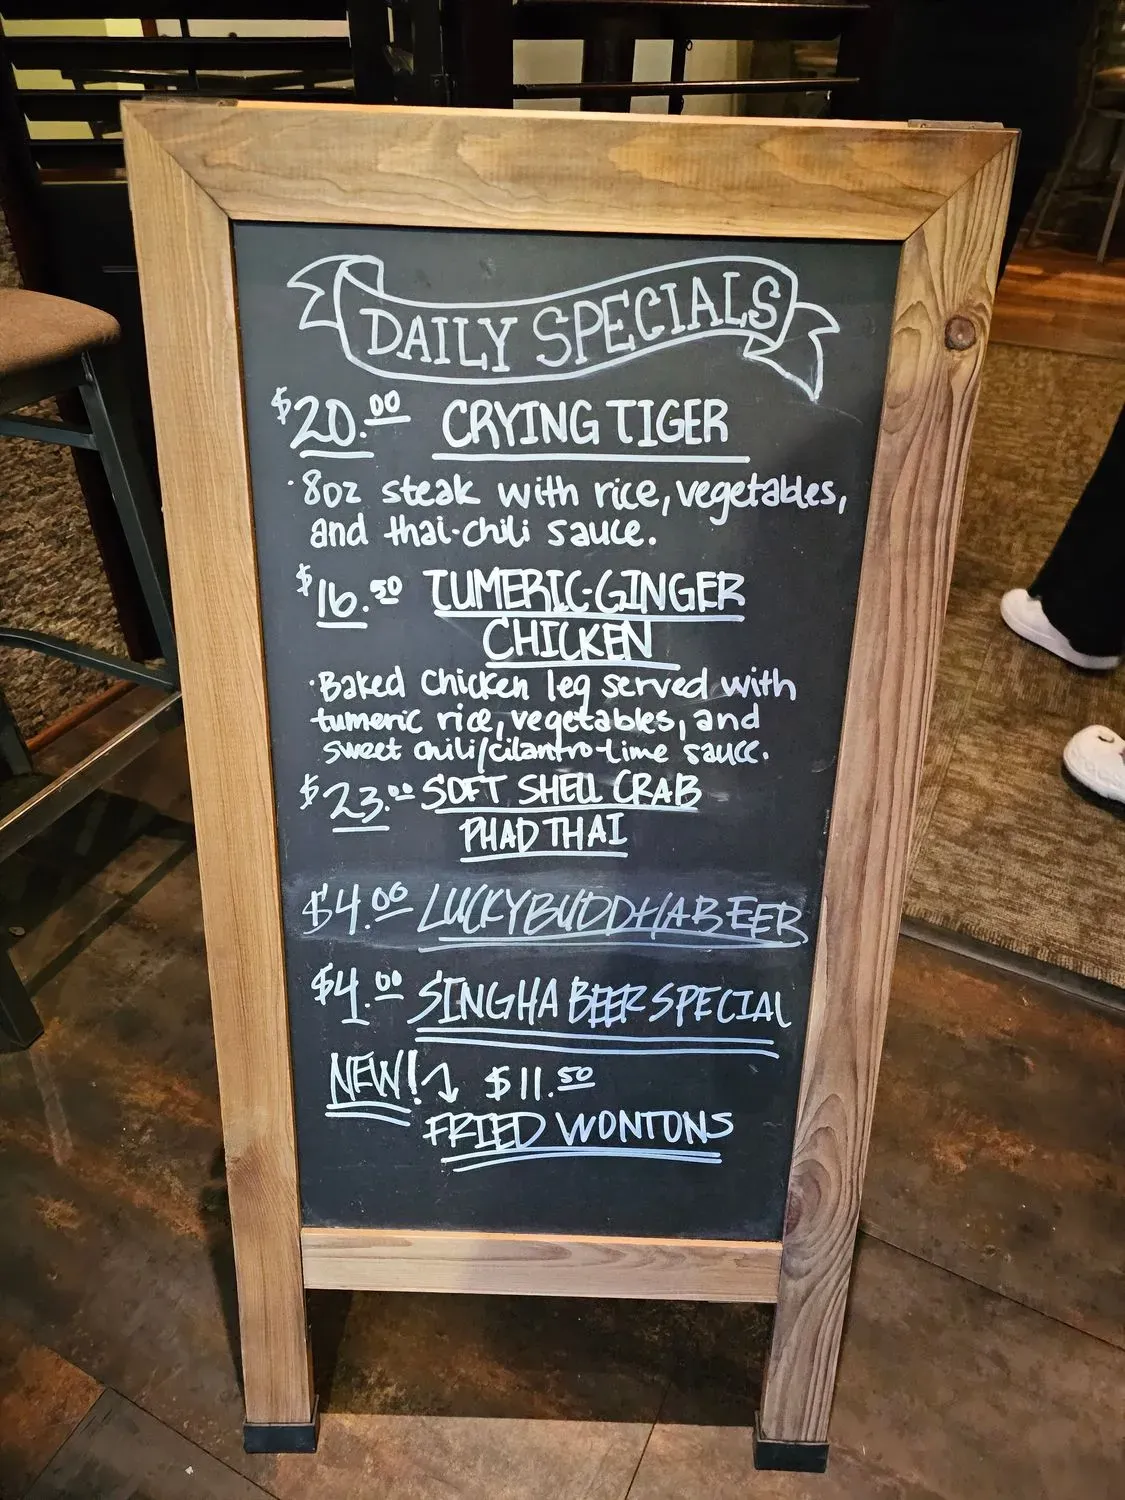 DAILY SPECIALS
$20.00 CRYING TIGER
·8oz steak with rice, vegetables,
and thai-chili sauce.
$16.50 TUMERIC-GINGER
CHICKEN
·Baked chicken leg served with
tumeric rice, vegetables, and
sweet chili/cilantro-lime sauce.
$23.00 SOFT SHELL CRAB
PHAD THAI
$4.00 LUCKY BUDDHA BEER
$4.00 SINGHA BEER SPECIAL
NEW! $11.50
FRIED WONTONS